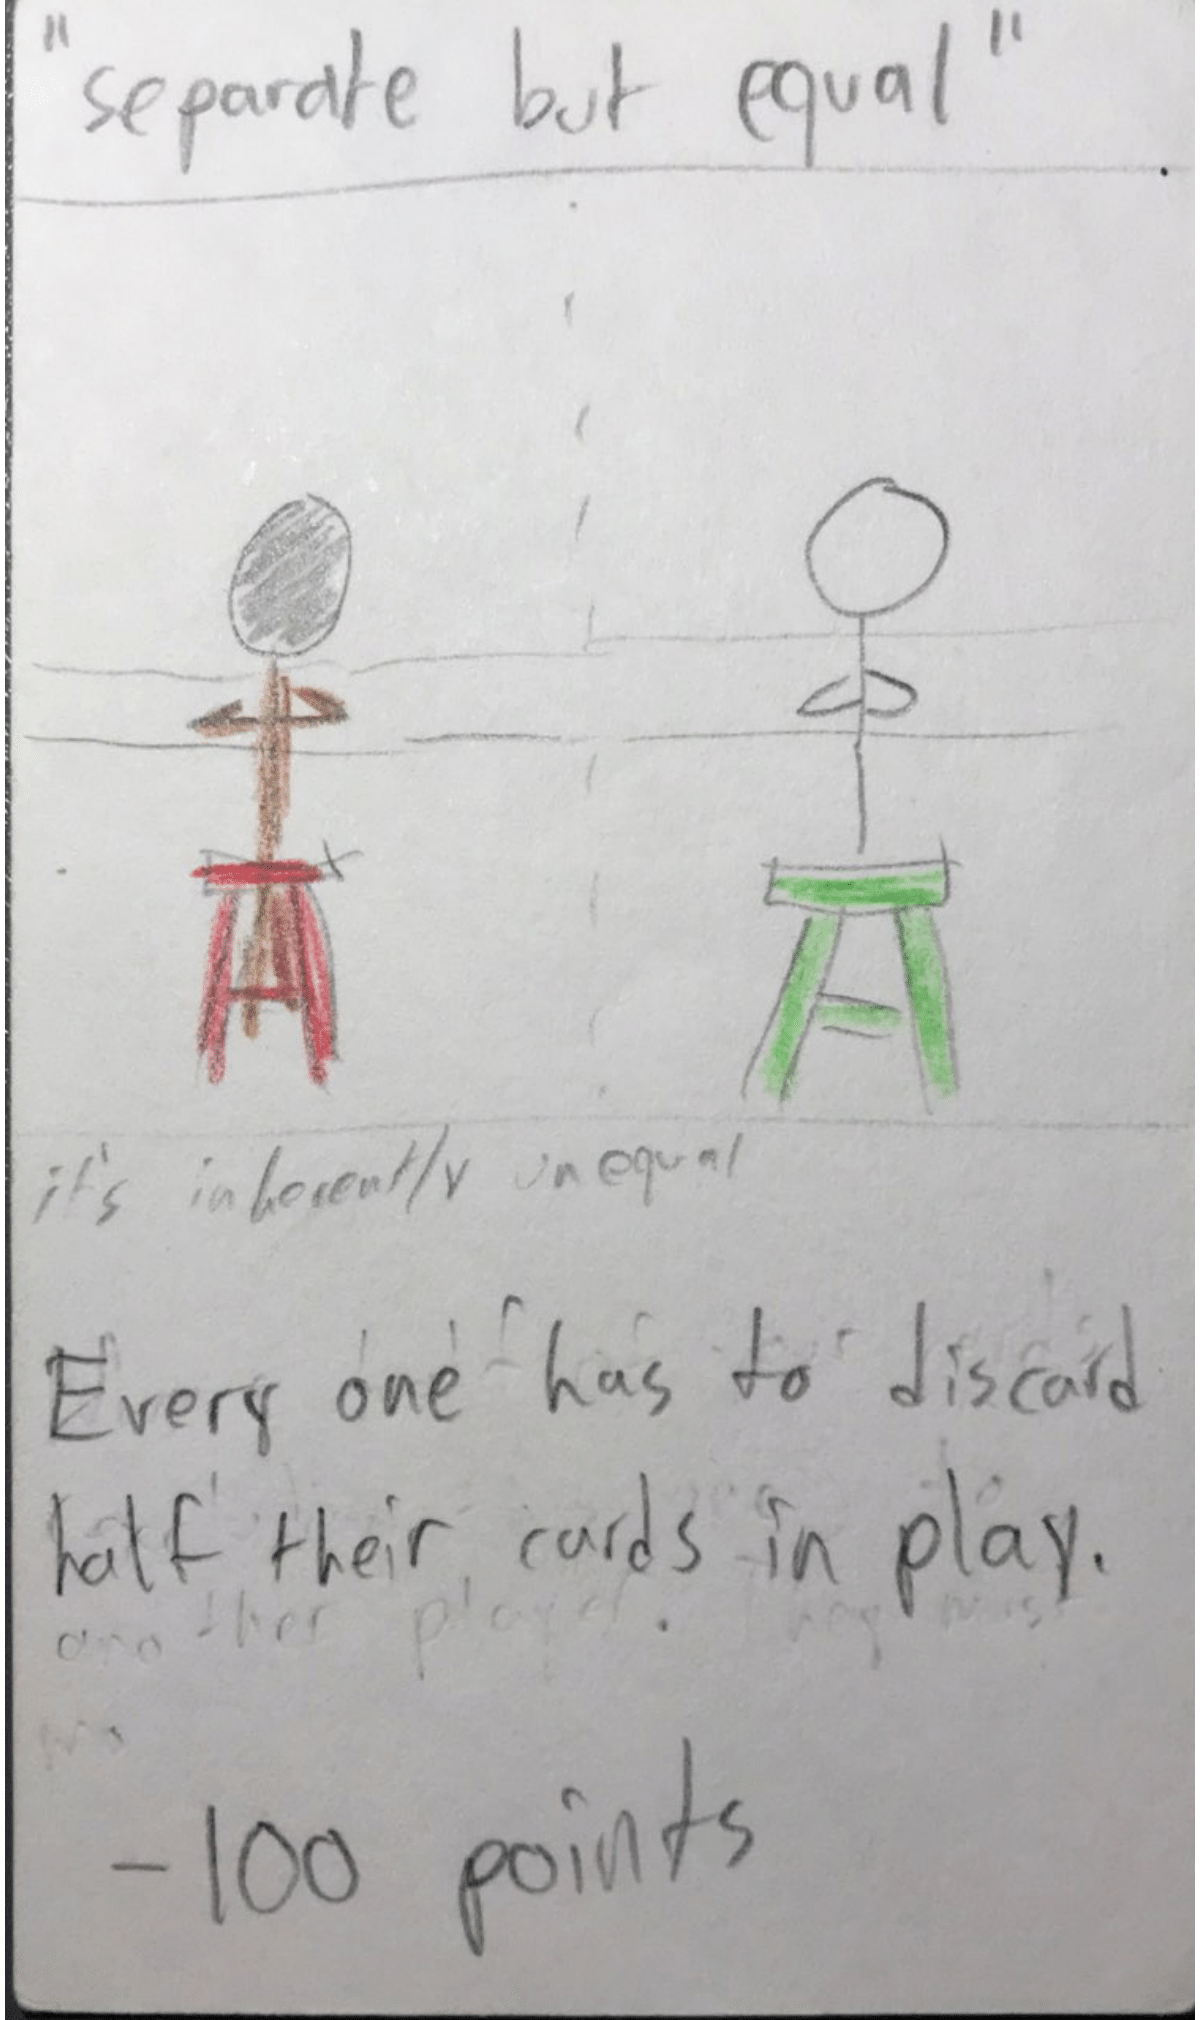 "separate but equal"
it's inherently unequal
Every one has to discard
half their cards in play.
another player. They must
-100 points